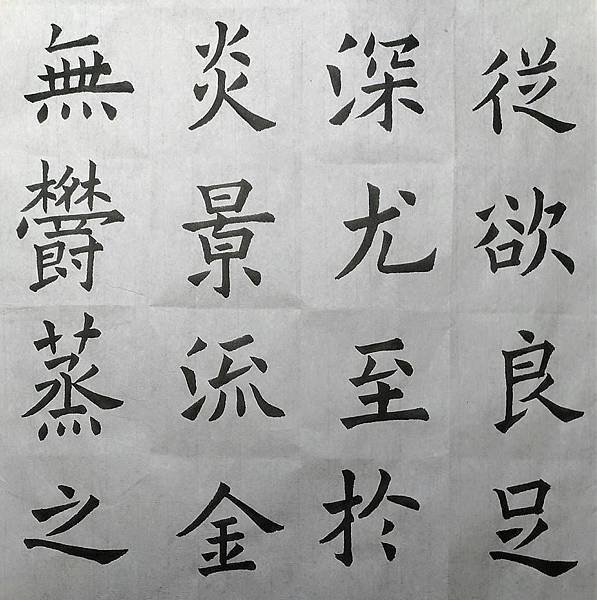 従欲良足
深尤至於
炎景流金
無欝蒸之